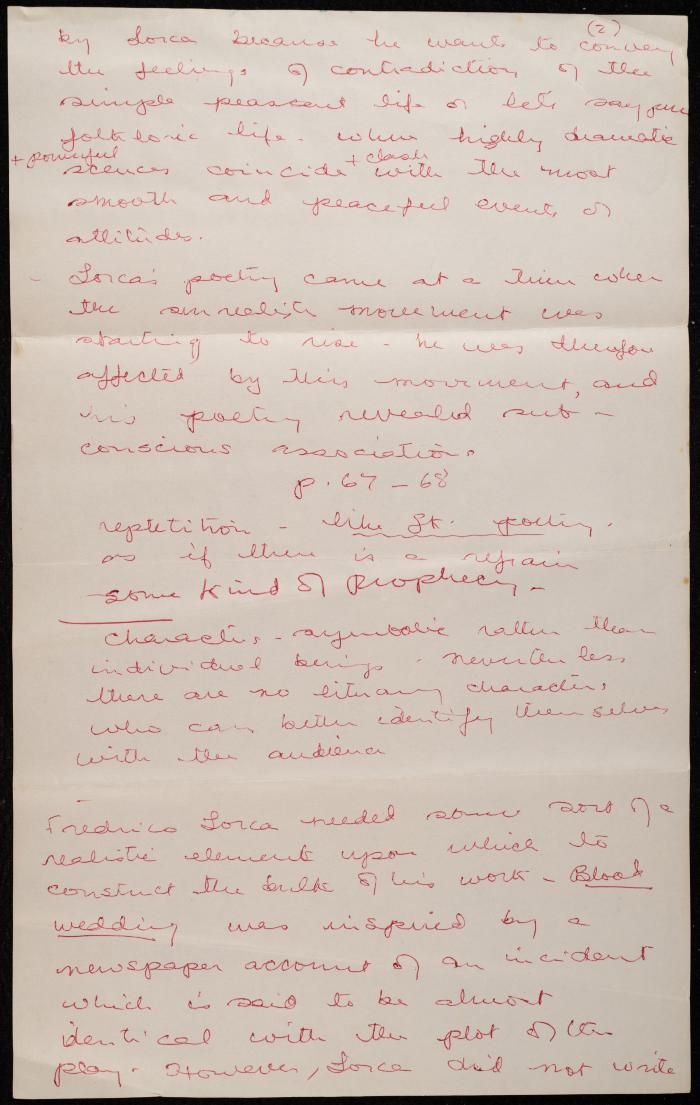 (2)
by Lorca because he wants to convey
the feelings of contradiction of the
simple peascent life or lets say pure
folkloric life - where highly dramatic
+ powerful + clash
scences coincide with the most
smooth and peaceful events or
attitudes.
- Lorca's poetry came at a time when
the surrealist movement was
starting to rise - he was therefore
affected by this movement, and
his poetry revealed sub-
conscious associations
p. 67 - 68
reptetition - like Gk. poetry.
as if there is a refrain
some kind of prophecy -
characters - symbolic rather than
individual beings. nevertheless
there are no literary characters
who can better identify themselves
with the audience
Fredrico Lorca needed some sort of a
realistic element upon which to
construct the bulk of his work - Blood
wedding was inspired by a
newspaper account of an incident
which is said to be almost
identical with the plot of the
play. However, Lorca did not write